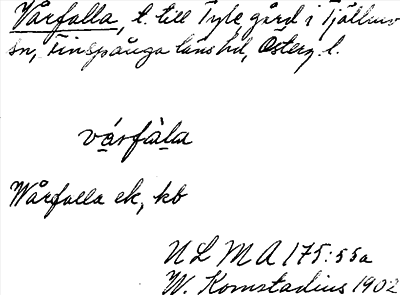 Vårfalla, t. till Tyle gård i Tjällmo
sn, Finspånga läns hd, Österg. l.
vårfàla
Wårfalla ek, kb
ULMA 175:55a
W. Komstadius 1902